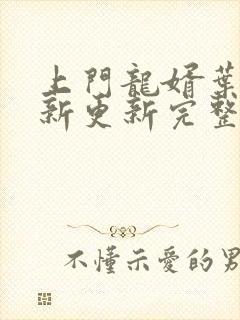 上門龍婿葉
新更新完整
不懂示愛的男